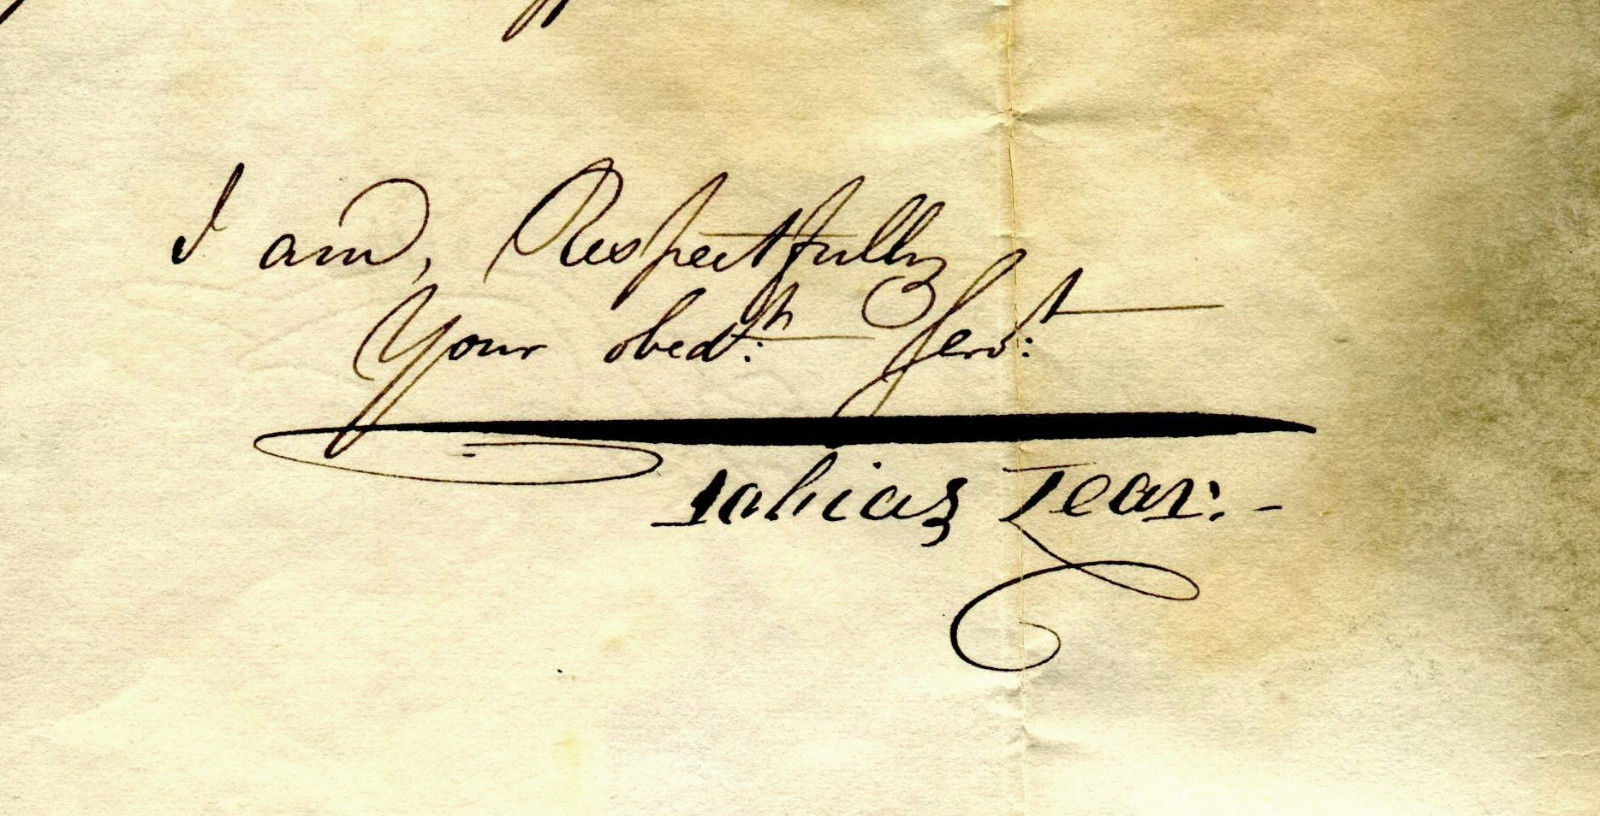 I am, Respectfully
Your obedt: Servt:
Tobias Lear:-